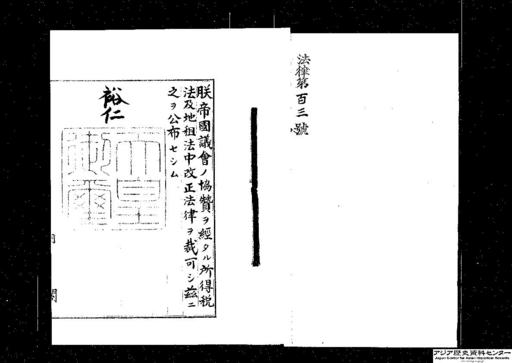 法律第百三號
朕帝國議會ノ協贊ヲ經タル所得稅
法及地租法中改正法律ヲ裁可シ茲ニ
之ヲ公布セシム
裕仁
天皇
御璽
アジア歴史資料センター
Japan Center for Asian Historical Records